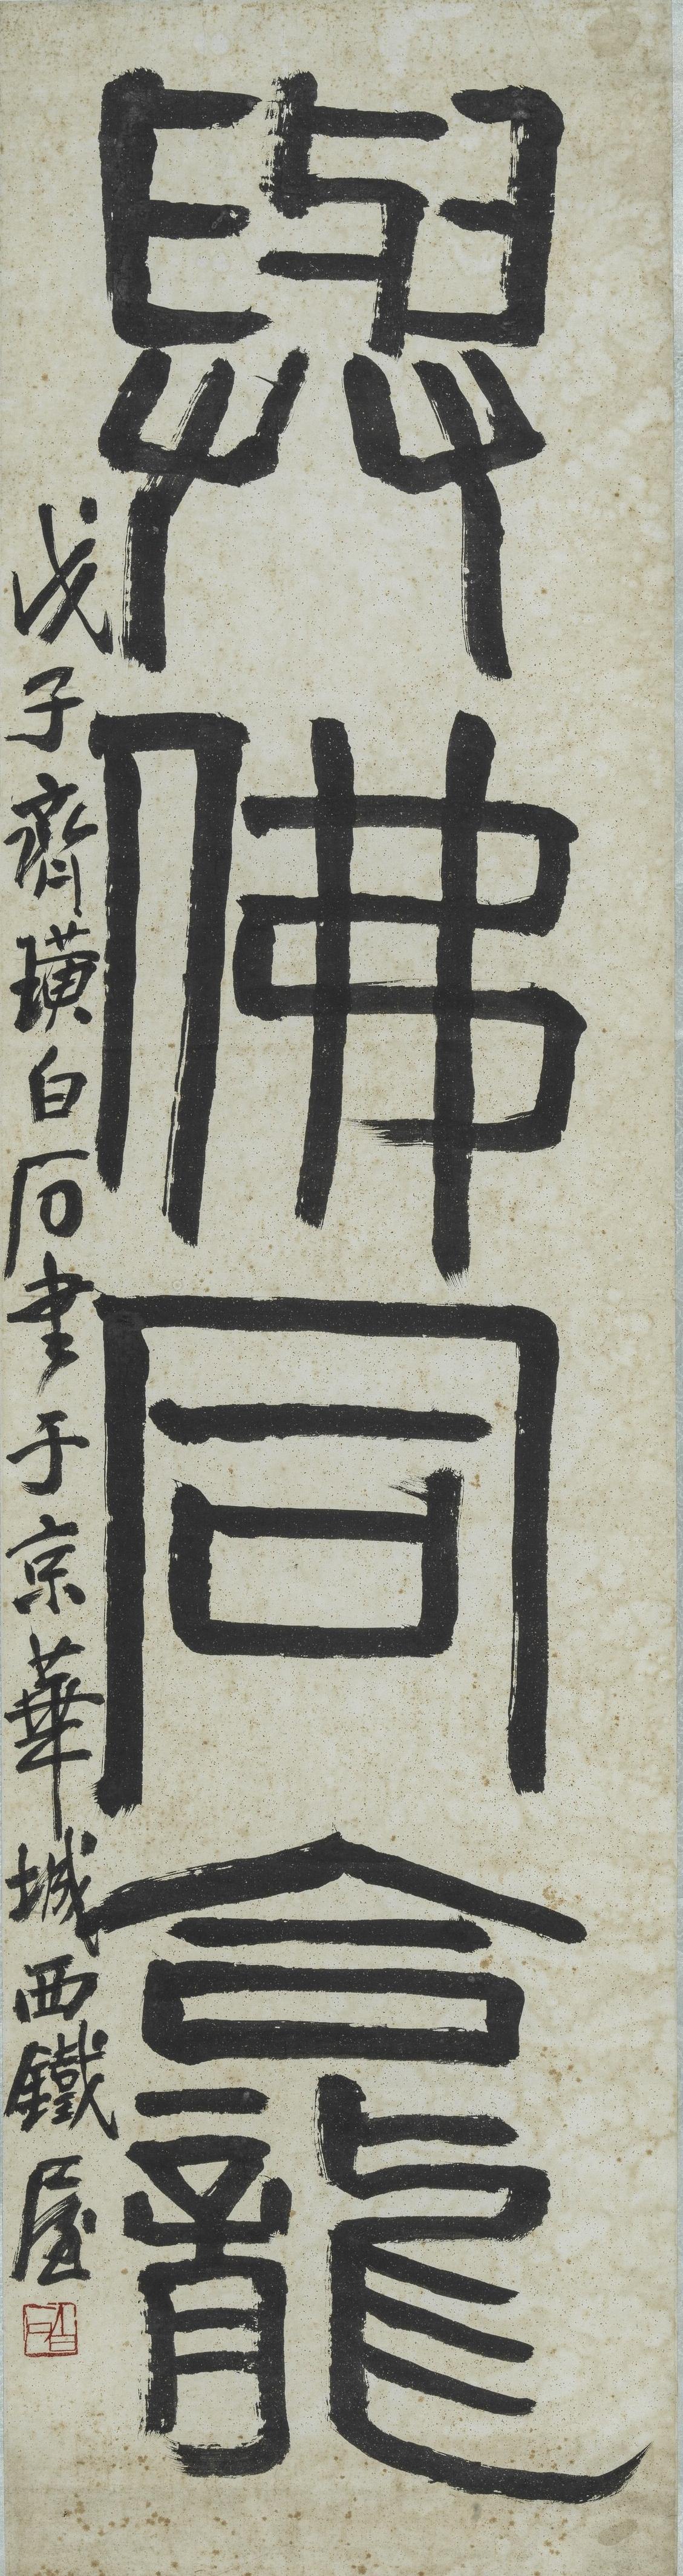 與佛同龕
戊子齊璜白石書于京華城西鐵屋
白石